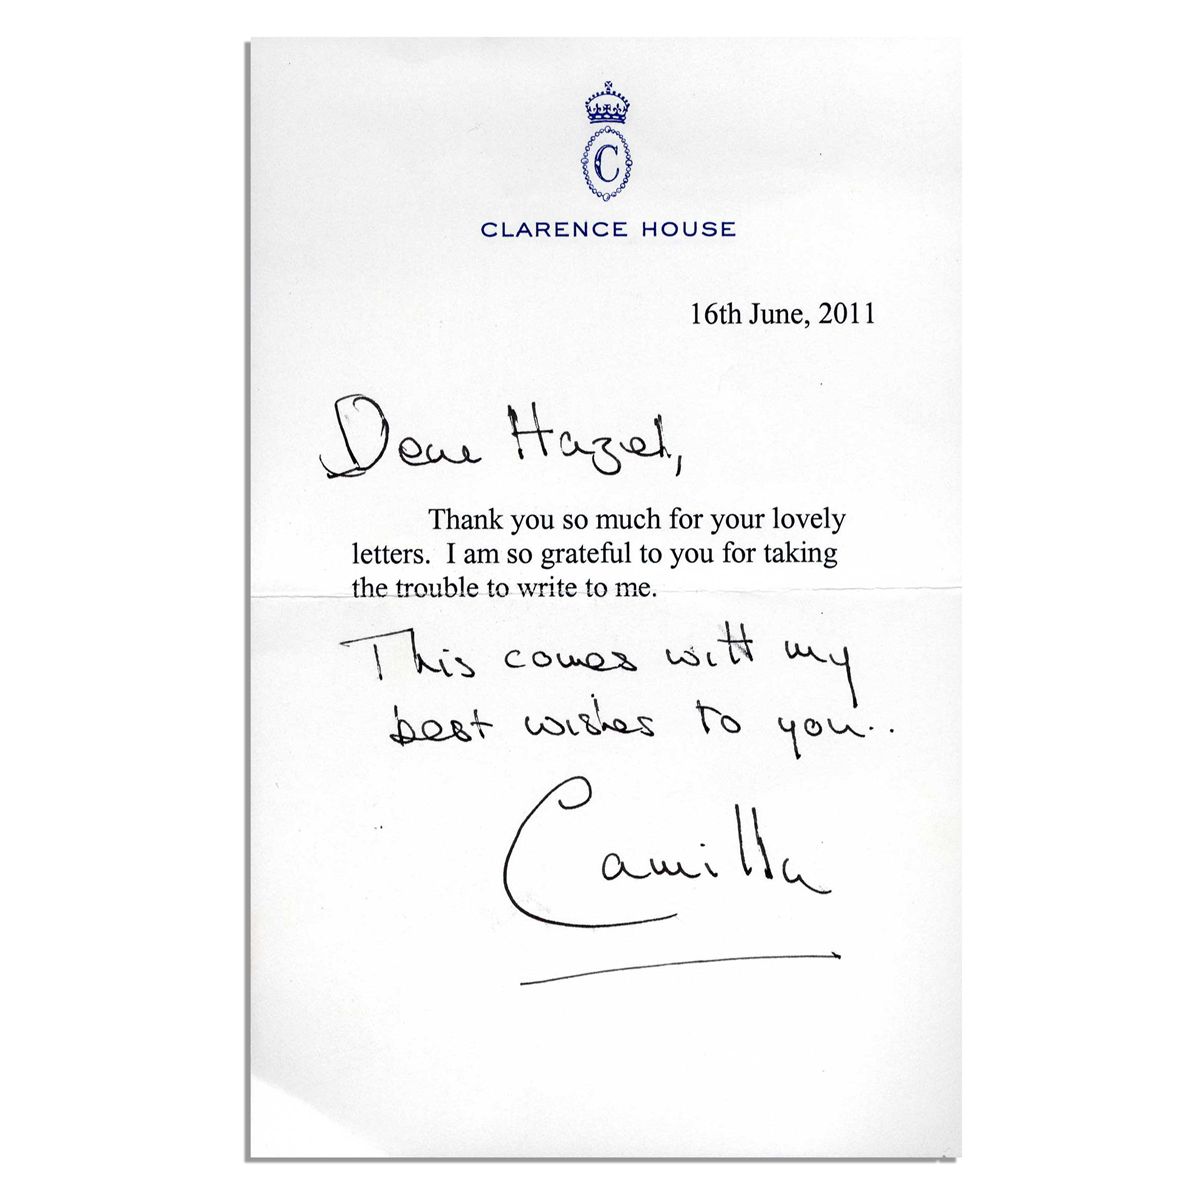 C
CLARENCE HOUSE
16th June, 2011
Dear Hazel,
Thank you so much for your lovely
letters. I am so grateful to you for taking
the trouble to write to me.
This comes with my
best wishes to you..
Camilla